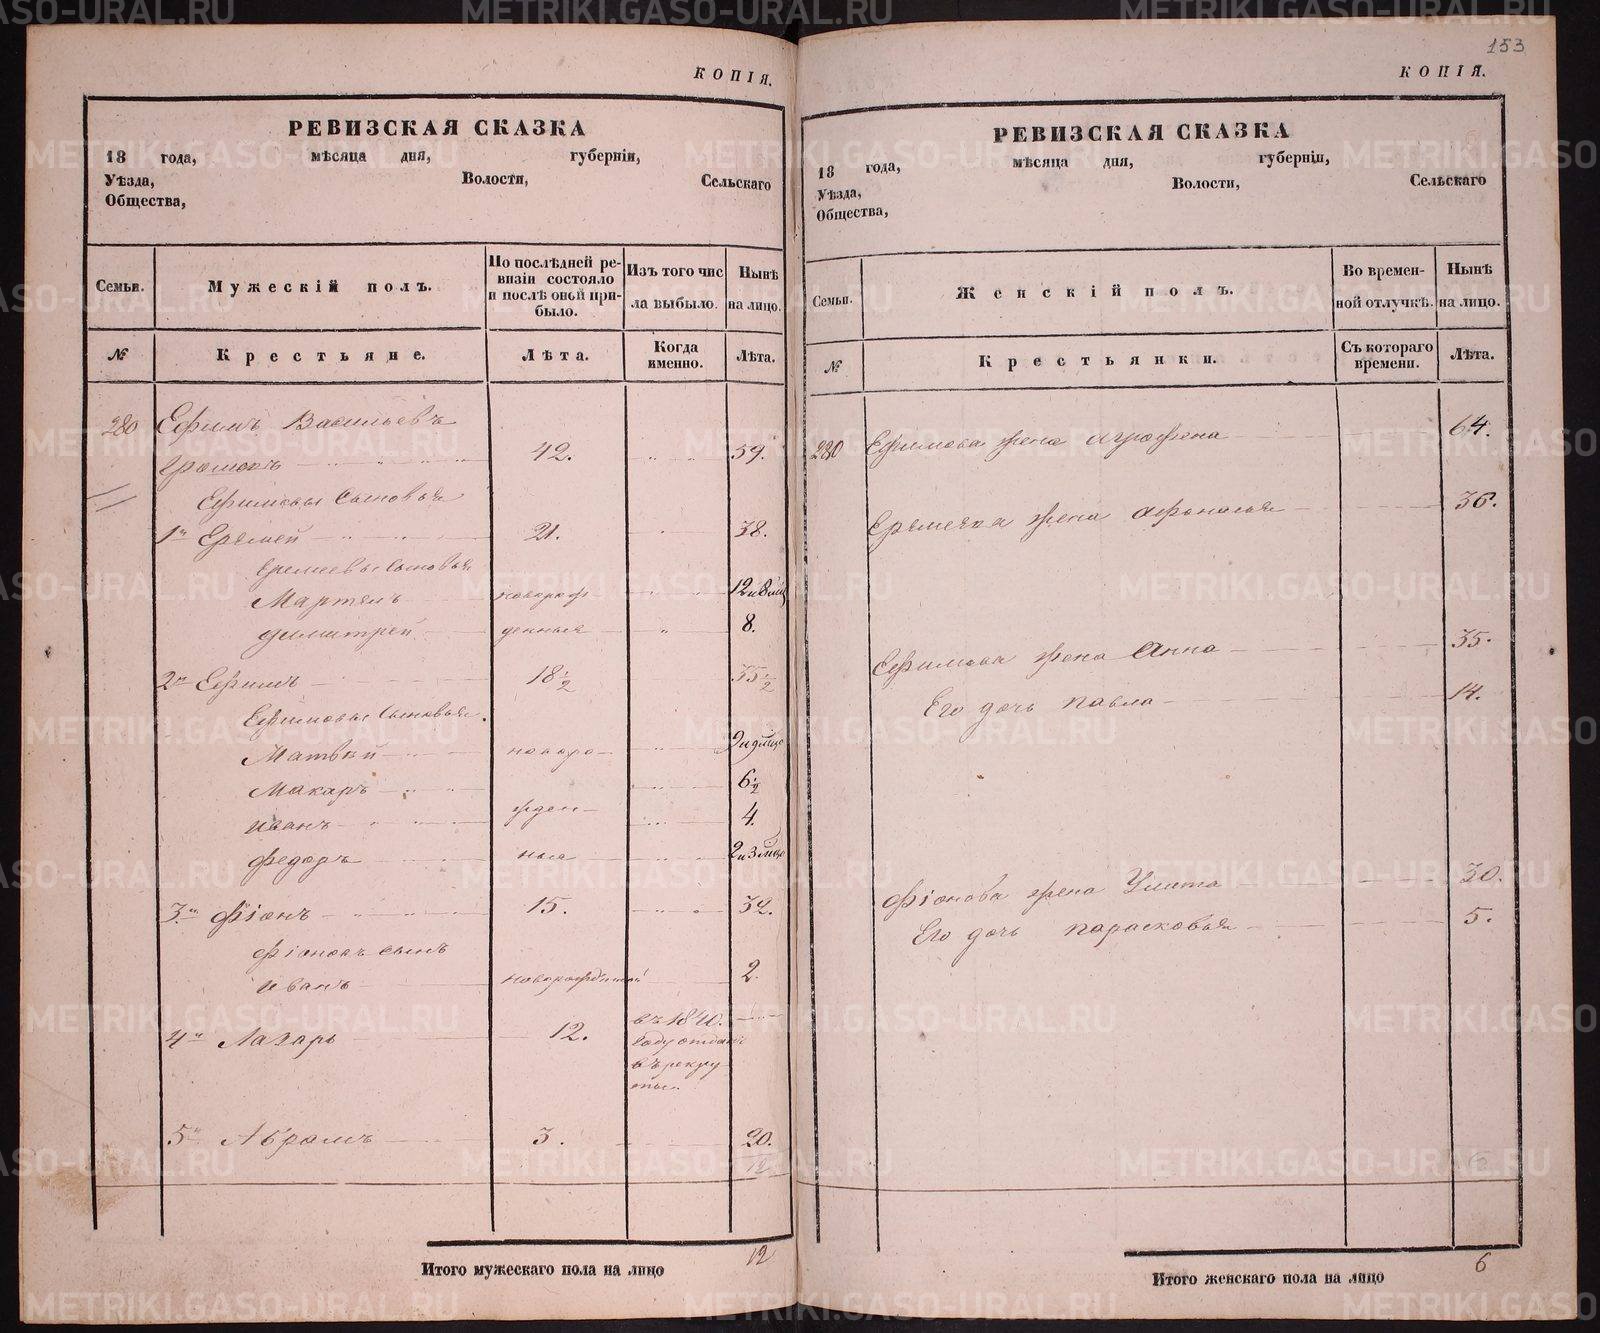 КОПІЯ.
РЕВИЗСКАЯ СКАЗКА
18 года, мѣсяца дня, губерніи,
Уѣзда, Волости, Сельскаго
Общества,
Семьи. Мужескій полъ. По послѣдней ревизіи состояло и послѣ оной прибыло. Изъ того числа выбыло. Нынѣ на лицо.
№ Крестьяне. Лѣта. Когда именно. Лѣта.
280 Ефимъ Васильевъ
42. 59.
Ефимовы Сыновья
1й Еремей 21. 38.
Еремеевы Сыновья
Мартынъ новорож 12 и 8 мѣц
Димитрей денныя 8.
2й Ефимъ 18 1/2 35 1/2
Ефимовы Сыновья.
Матвѣй новоро 9 и 9 мѣцо
Макаръ 6 1/2
Иванъ жден 4.
Федоръ ные 2 и 3 мѣцо
3й Фіонъ 15. 32.
Фіоновъ сынъ
Иванъ новорожденной 2.
4й Лазарь 12. въ 1840. году отданъ въ рекруты.
5й Абрамъ 3. 20.
12
Итого мужескаго пола на лицо 12
153
КОПІЯ.
РЕВИЗСКАЯ СКАЗКА
18 года, мѣсяца дня, губерніи,
Уѣзда, Волости, Сельскаго
Общества,
Семьи. Женскій полъ. Во временной отлучкѣ. Нынѣ на лицо.
№ Крестьянки. Съ котораго времени. Лѣта.
280 Ефимова жена Аграфена 64.
жена Афонасья 36.
Ефимова жена Анна 35.
Его дочь Павла 14.
Фіонова жена Улита 30.
Его дочь Парасковья 5.
6
Итого женскаго пола на лицо 6
METRIKI.GASO-URAL.RU